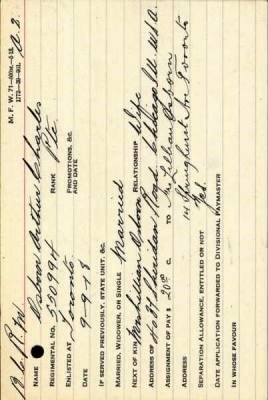 M. F. W. 71
NAME Osborn Arthur Charles
REGIMENTAL NO. RANK Pte
ENLISTED AT Toronto PROMOTIONS, &C. AND DATE
DATE 9-9-18
IF SERVED PREVIOUSLY, STATE UNIT, &C.
MARRIED, WIDOWER, OR SINGLE Married
NEXT OF KIN Mrs Lillian Osborn RELATIONSHIP Wife
ADDRESS OF Sheridan Road Chicago Ill. U.S.A.
ASSIGNMENT OF PAY $ 20 00 TO Mrs Lillian Osborn
ADDRESS 14 Springhurst Ave Toronto
SEPARATION ALLOWANCE, ENTITLED OR NOT Yes
DATE APPLICATION FORWARDED TO DIVISIONAL PAYMASTER
IN WHOSE FAVOUR